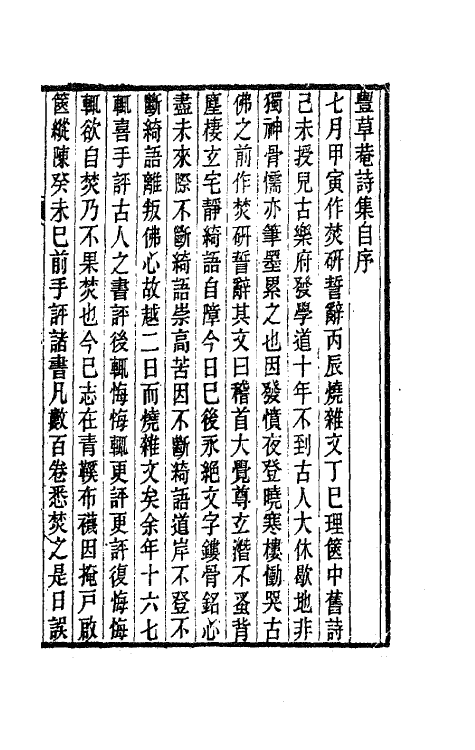 豐草菴詩集自序
七月甲寅作焚硏誓辭丙辰燒雜文丁巳理篋中舊詩
己未授兒古樂府發學道十年不到古人大休歇地非
獨神骨懦亦筆墨累之也因發憤夜登曉寒樓慟哭古
佛之前作焚硏誓辭其文曰稽首大覺尊立潛不蚤背
塵棲立宅靜綺語自障今日已後永絕文字鏤骨銘心
盡未來際不斷綺語崇高苦因不斷綺語道岸不登不
斷綺語離叛佛心故越二日而燒雜文矣余年十六七
輒喜手評古人之書評後輒悔悔輒更評更評復悔悔
輒欲自焚乃不果焚也今已志在青鞵布襪因掩戶啟
篋縱陳癸未巳前手評諸書凡數百卷悉焚之是日誤